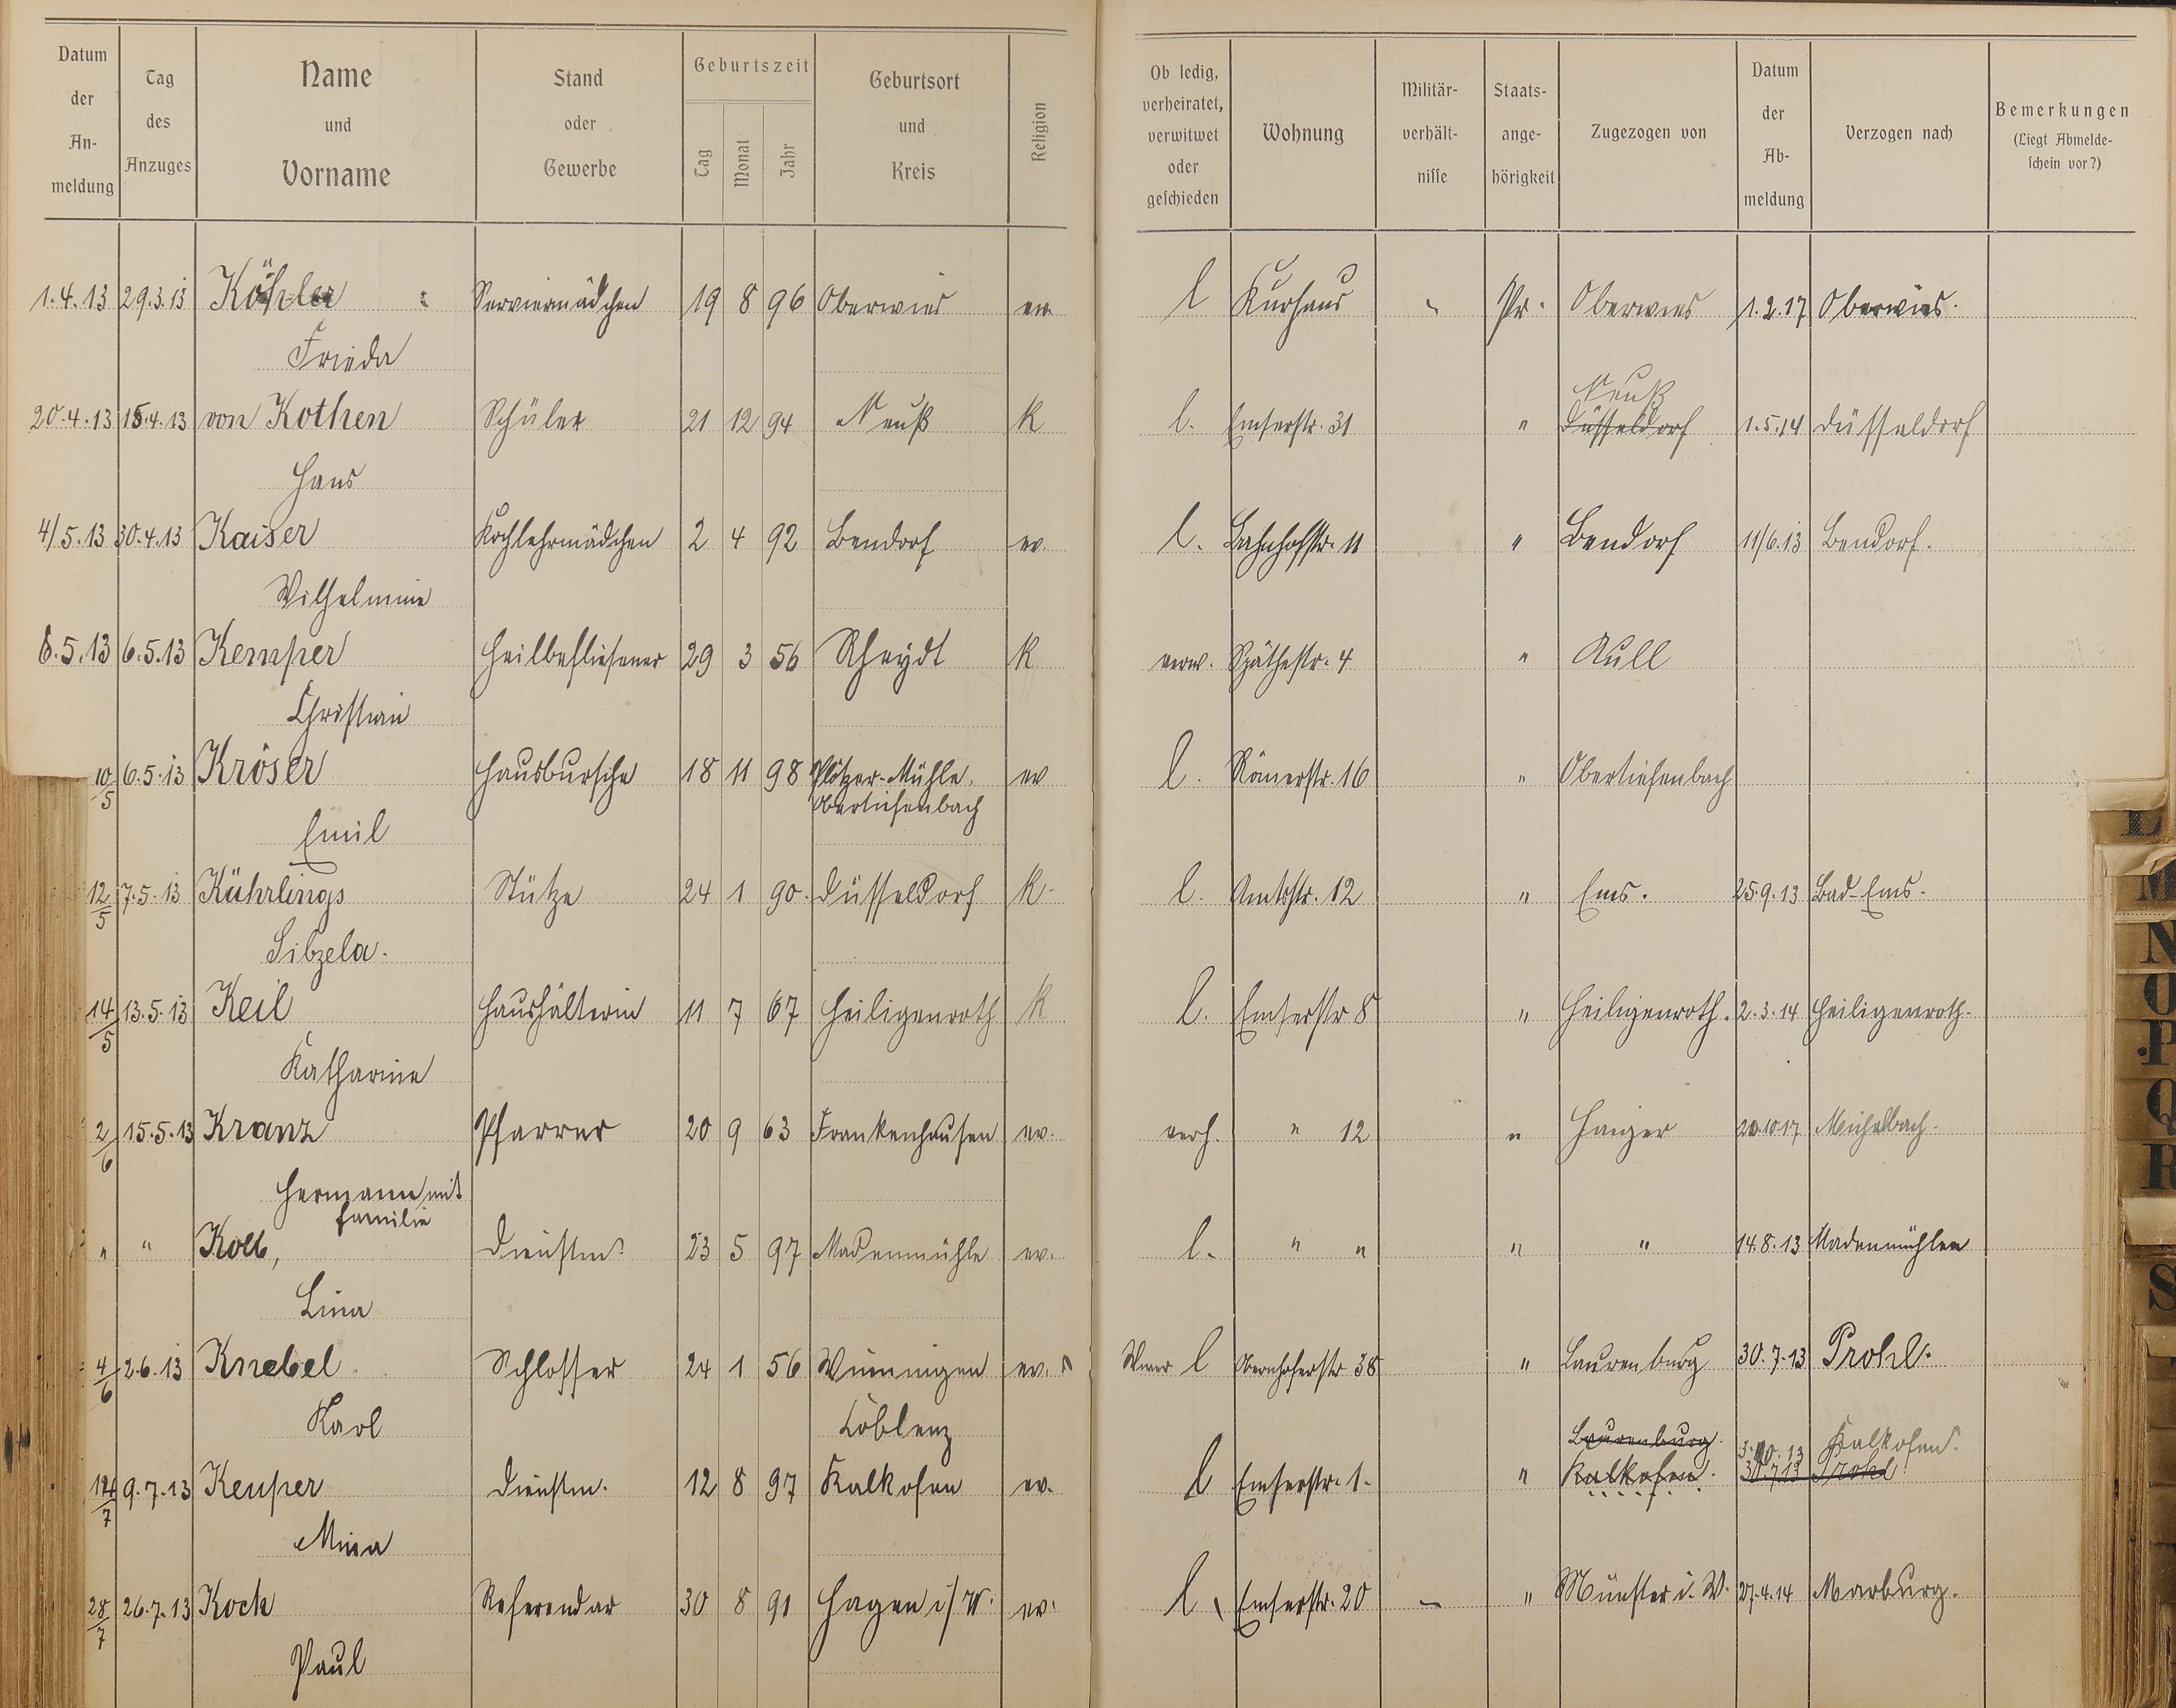 Datum der Anmeldung | Tag des Anzuges | Name und Vorname | Stand oder Gewerbe | Geburtszeit Tag Monat Jahr | Geburtsort und Kreis | Religion | Ob ledig, verheiratet, verwitwet oder geschieden | Wohnung | Militär-verhält-nisse | Staats-ange-hörigkeit | Zugezogen von | Datum der Ab-meldung | Verzogen nach | Bemerkungen (Liegt Abmelde-schein vor?)
1.4.13 29.3.13 Köhler Serviermädchen 19 8 96 Oberwies ev. l Kurhaus " Pr. Oberwies 1.2.17 Oberwies.
Frieda
Neuß
20.4.13 15.4.13 von Kothen Schüler 21 12 94 Neuß K l. Emserstr. 31 " Düsseldorf 1.5.14 Düsseldorf
Hans
4/5.13 30.4.13 Kaiser Kochlehrmädchen 2 4 92 Bendorf ev. l. Bahnhofstr. 11 " Bendorf 11/6.13 Bendorf.
Wilhelmine
6.5.13 6.5.13 Kemper Heilbeflissener 29 3 56 Rheydt K verw. Späthestr. 4 " Aull
Christian
10/5 6.5.13 Kröser Hausbursche 18 11 98 Plötzer-Mühle. ev l. Römerstr. 16 " Obertiefenbach
Obertiefenbach
Emil
12/5 7.5.13 Kührlings Stütze 24 1 90. Düsseldorf K. l. Amtsstr. 12 " Ems. 25.9.13 Bad-Ems.
Sibzela.
14/5 13.5.13 Keil Haushälterin 11 7 67 Heiligenroth K l. Emserstr 8 " Heiligenroth. 2.3.14 Heiligenroth.
Katharine
2/6 15.5.13 Kranz Pfarrer 20 9 63 Frankenhausen ev. verh. " 12 " Haiger 20.10.17 Michelbach.
Hermann mit
Familie
" " Kolb, Dienstm. 23 5 97 Madenmühle ev. l. " " " " 14.8.13 Madenmühlen
Lina
4/6 2.6.13 Knebel Schlosser 24 1 56 Winningen ev. l Obernhoferstr 38 " Laurenburg 30.7.13 Prohl.
Karl Coblenz
Laurenburg. 3.10.13 Kalkofen.
14/7 9.7.13 Keuper Dienstm. 12 8 97 Kalkofen ev. l Emserstr. 1. " Kalkofen. 30.7.13 Prohl
Mina
28/7 26.7.13 Koch Referendar 30 8 91 Hagen i/W. ev. l. Emserstr. 20 — " Münster i. W. 27.4.14 Marburg.
Paul
L
M
N
O
P
Q
R
S